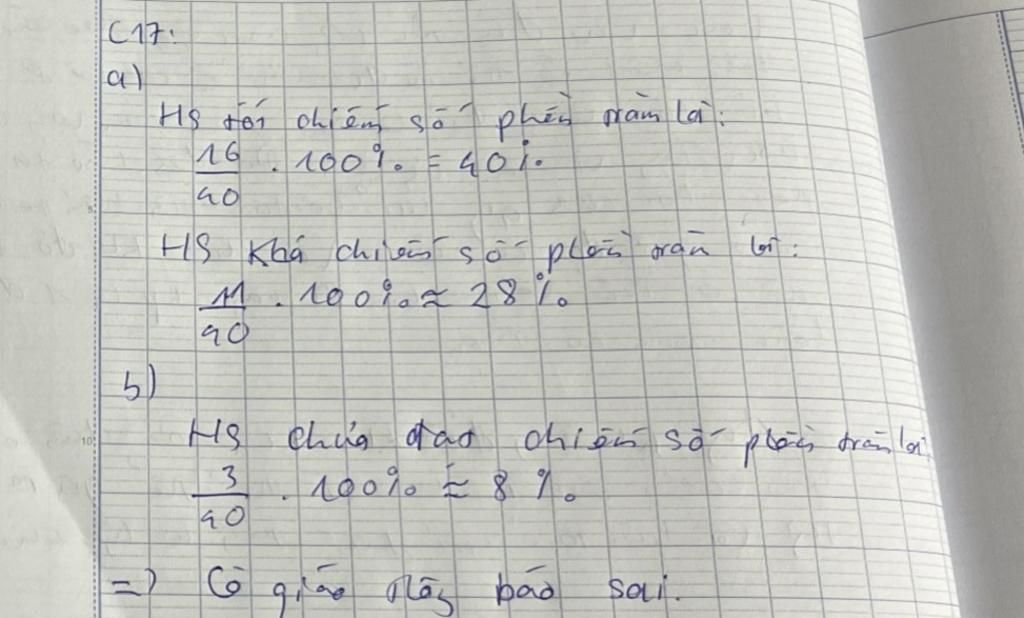 C17:
a)
HS tốt chiếm số phần trăm là:
16/40 . 100% = 40%
HS Khá chiếm số phần trăm là:
11/40 . 100% ≈ 28%
b)
HS chưa đạt chiếm số phần trăm là
3/40 . 100% ≈ 8%
=> Cô giáo thông báo sai.